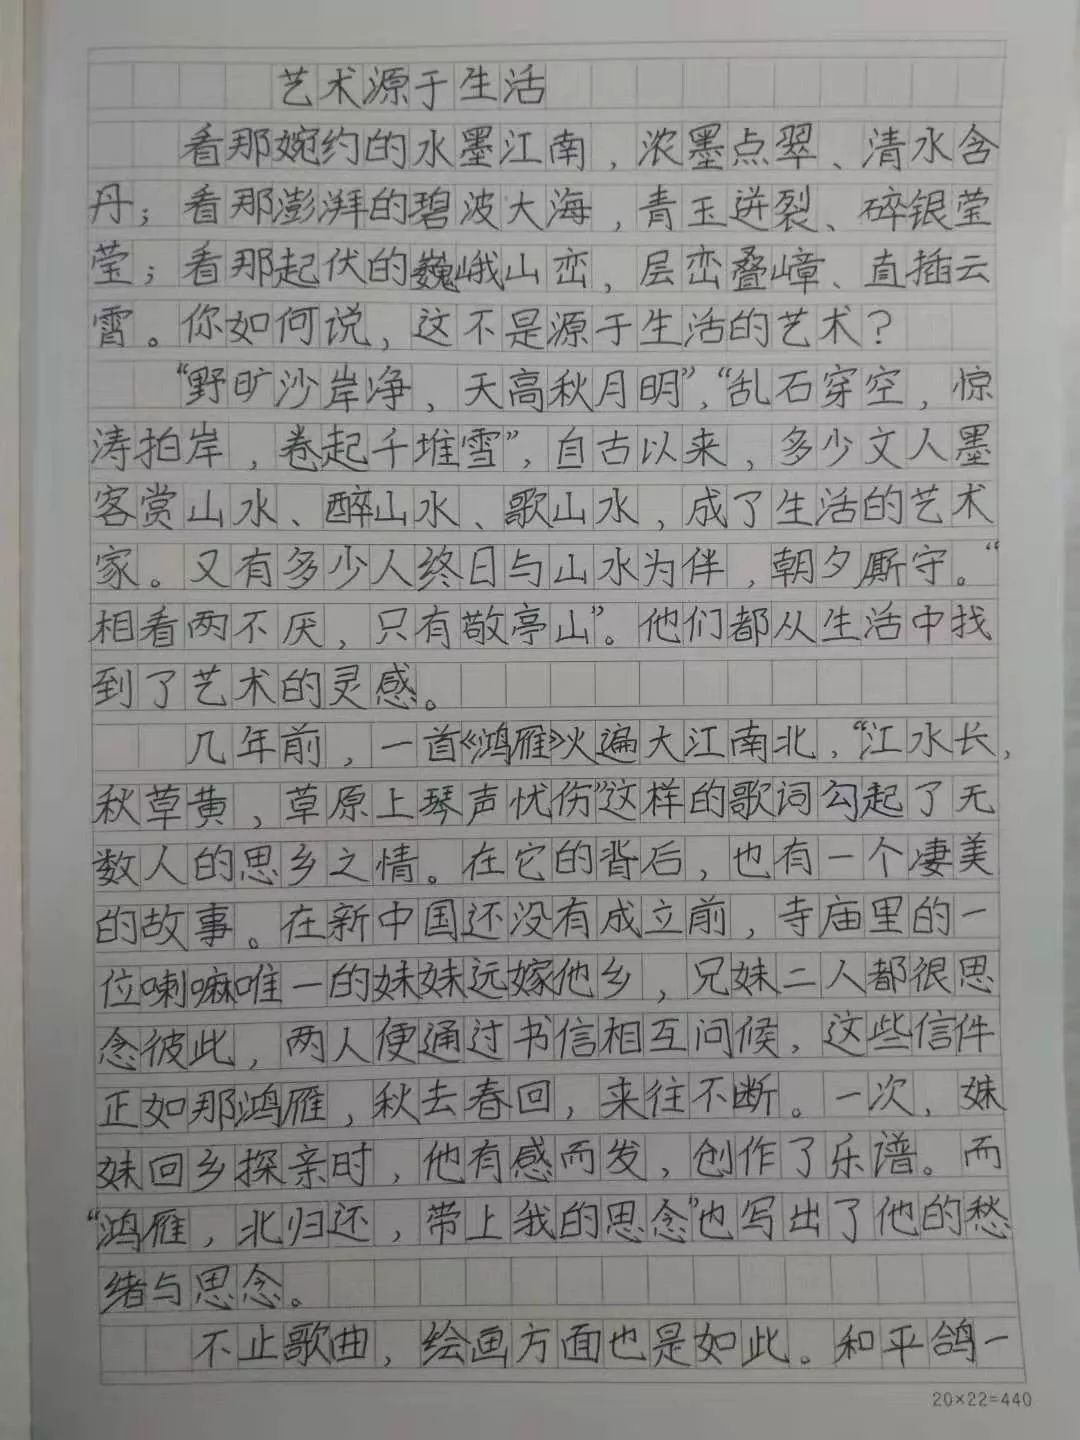 艺术源于生活
看那婉约的水墨江南，浓墨点翠、清水含
丹；看那澎湃的碧波大海，青玉迸裂、碎银莹
莹；看那起伏的巍峨山峦，层峦叠嶂、直插云
霄。你如何说，这不是源于生活的艺术？
“野旷沙岸净，天高秋月明”，“乱石穿空，惊
涛拍岸，卷起千堆雪”，自古以来，多少文人墨
客赏山水、醉山水、歌山水，成了生活的艺术
家。又有多少人终日与山水为伴，朝夕厮守。“
相看两不厌，只有敬亭山”。他们都从生活中找
到了艺术的灵感。
几年前，一首《鸿雁》火遍大江南北，“江水长，
秋草黄，草原上琴声忧伤”这样的歌词勾起了无
数人的思乡之情。在它的背后，也有一个凄美
的故事。在新中国还没有成立前，寺庙里的一
位喇嘛唯一的妹妹远嫁他乡，兄妹二人都很思
念彼此，两人便通过书信相互问候，这些信件
正如那鸿雁，秋去春回，来往不断。一次，妹
妹回乡探亲时，他有感而发，创作了乐谱。而
“鸿雁，北归还，带上我的思念”也写出了他的愁
绪与思念。
不止歌曲，绘画方面也是如此。和平鸽一
20×22=440